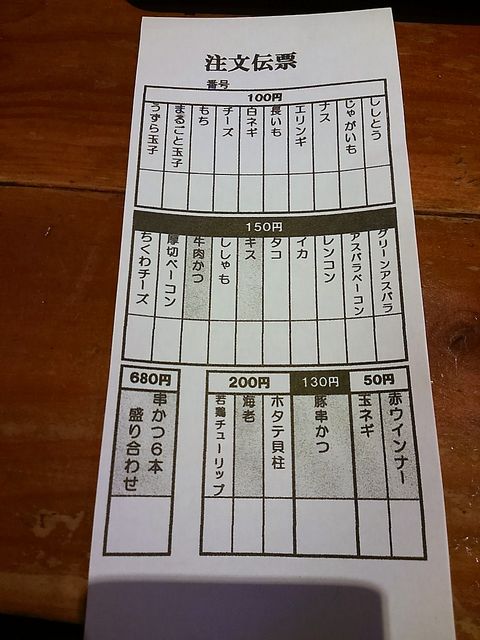 注文伝票
番号
100円
ししとう
じゃがいも
ナス
エリンギ
長いも
白ネギ
チーズ
もち
まるごと玉子
うずら玉子
150円
グリーンアスパラ
アスパラベーコン
レンコン
イカ
タコ
キス
ししゃも
牛肉かつ
厚切ベーコン
ちくわチーズ
50円
赤ウインナー
玉ネギ
130円
豚串かつ
200円
ホタテ貝柱
海老
若鶏チューリップ
680円
串かつ6本
盛り合わせ